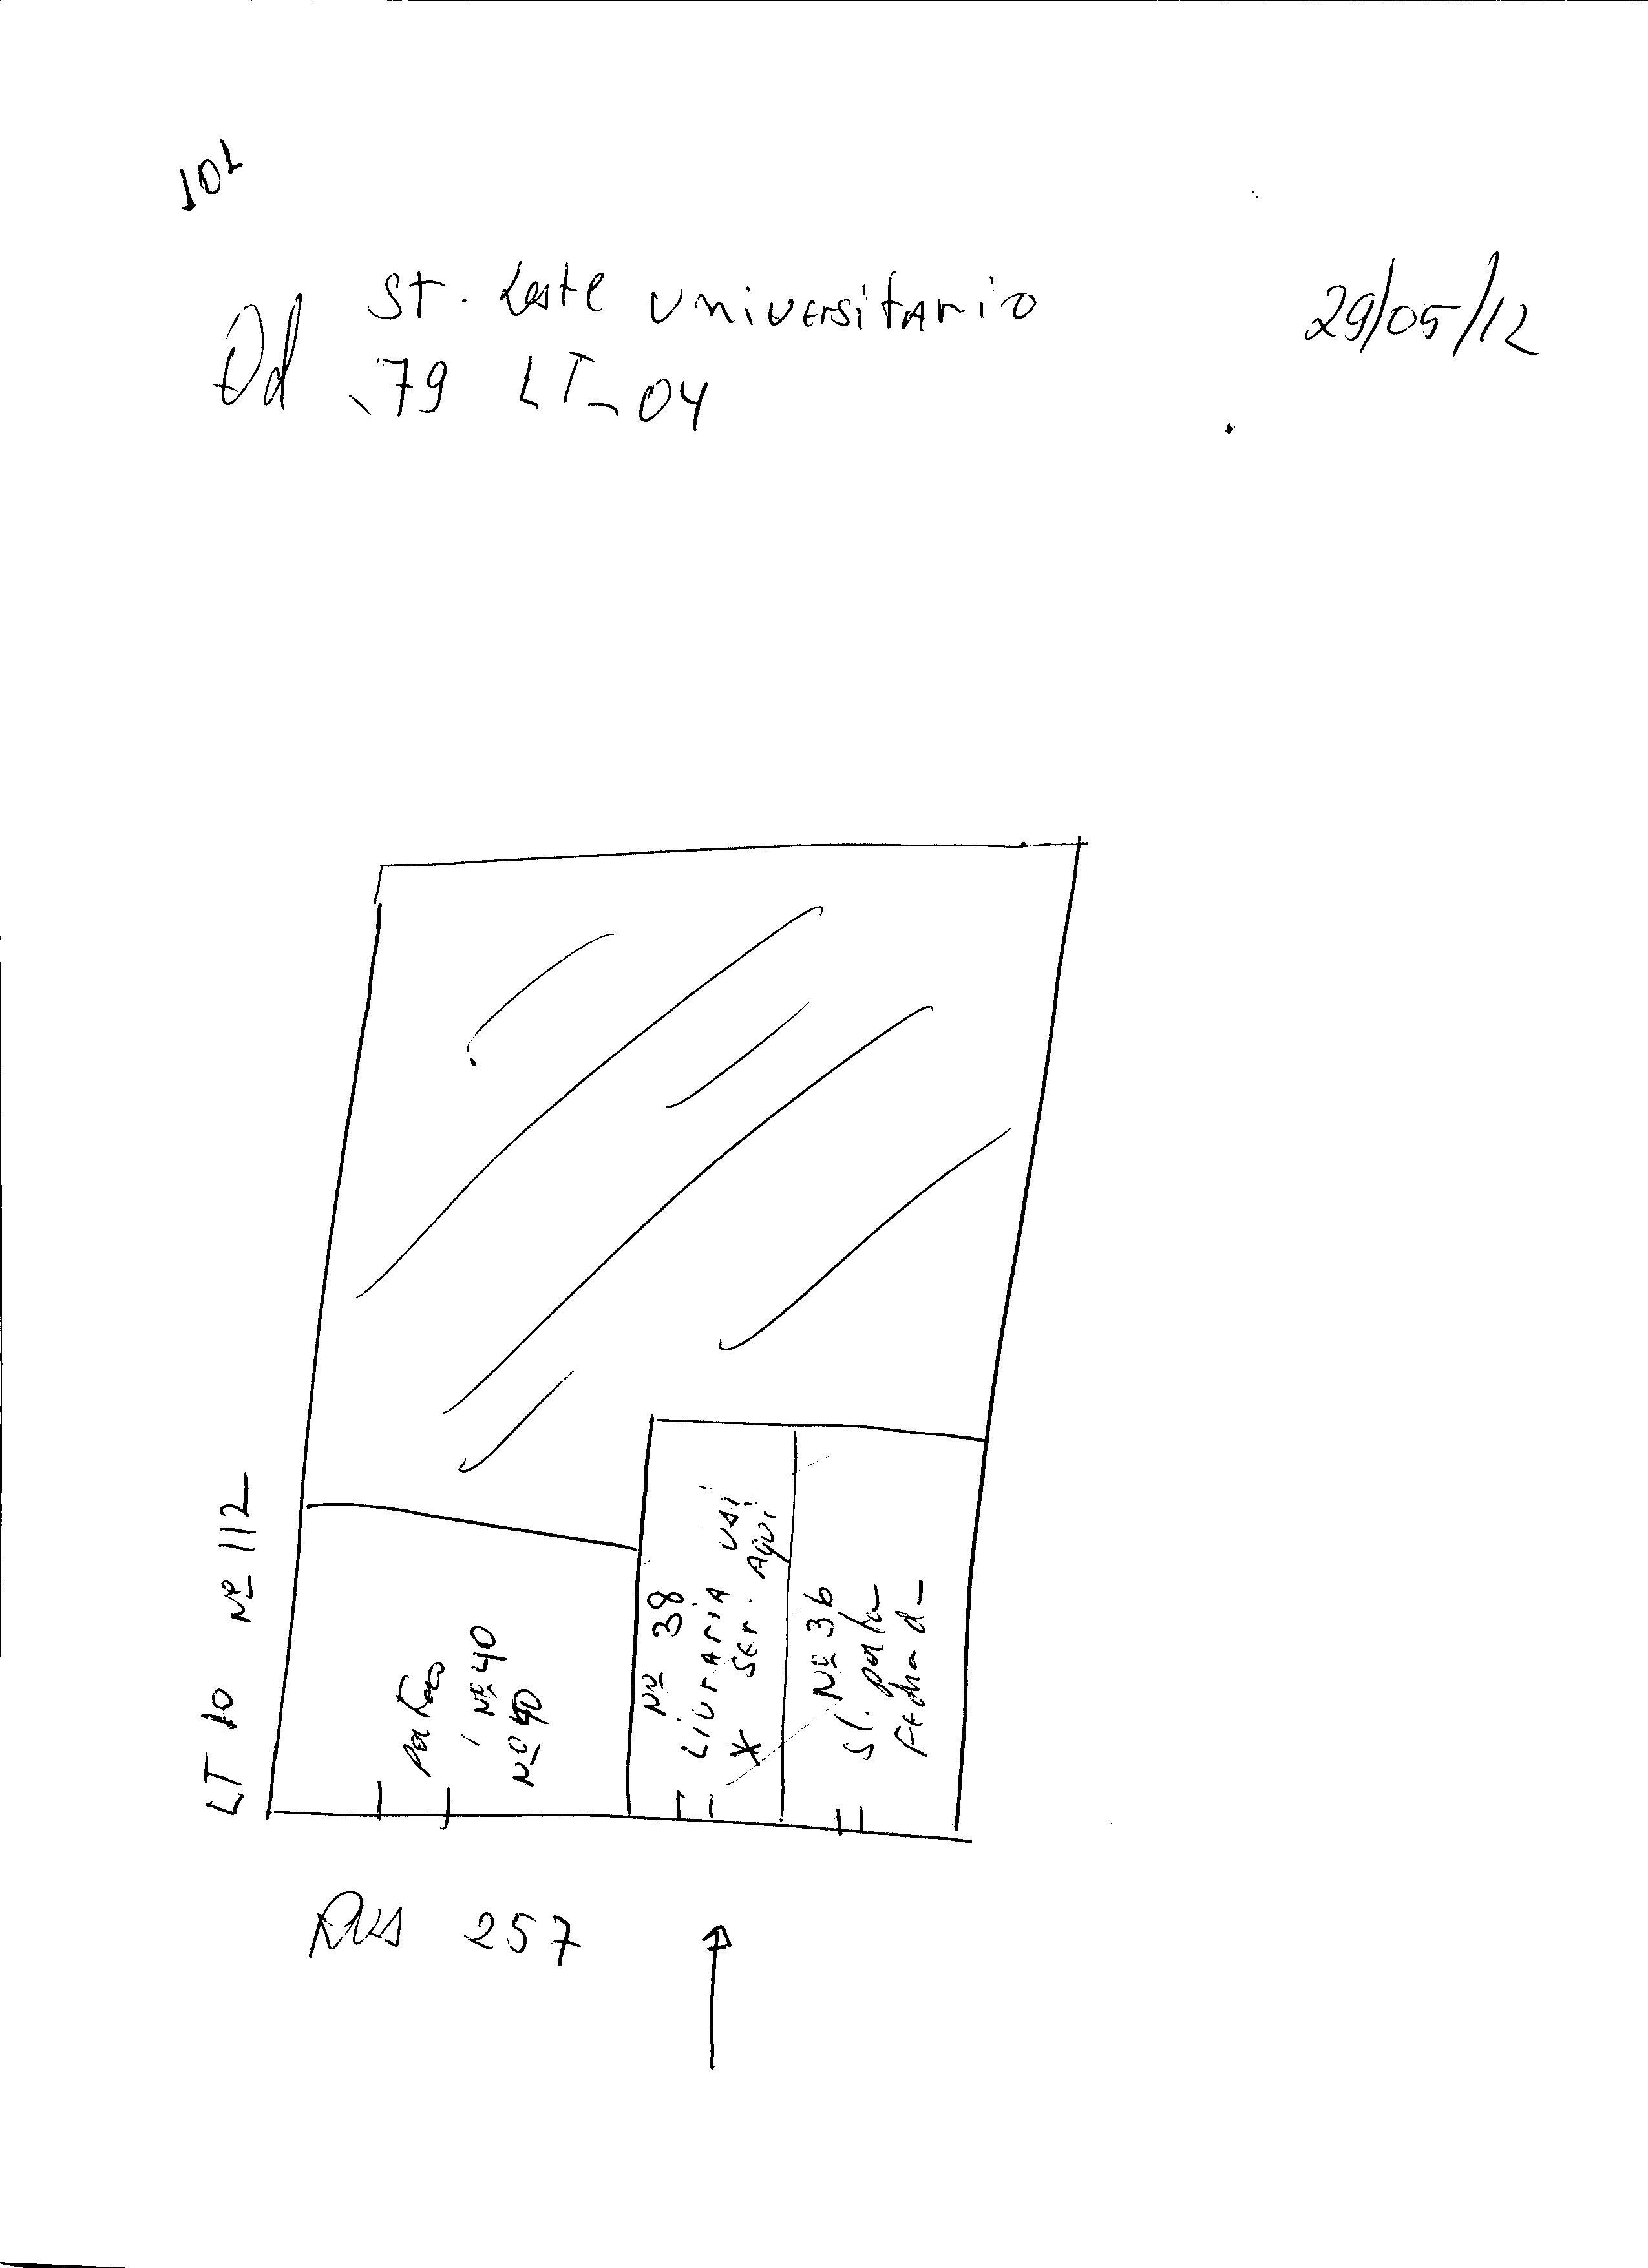 101
St. Leste Universitario
29/05/12
Qd 79 LT - 04
LT 10 Nº 112
portão
Nº 40
Nº 40
Nº 38
LIVrARIA
X Ser. Aqui
Nº 36
Sl. porta
Fechad
RUA 257